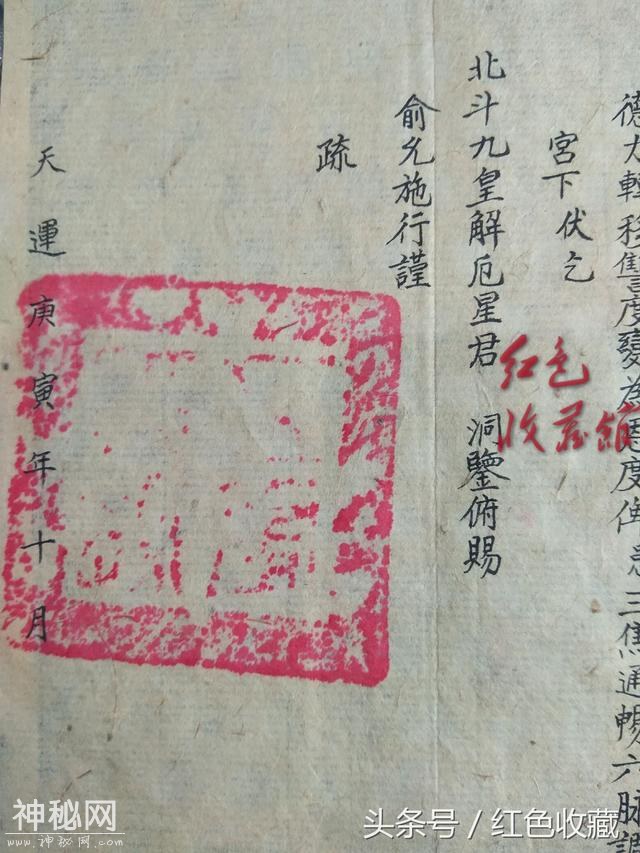 德力轉移雠度變為恩度俾患三焦通暢六脉調
宮下伏乞
北斗九皇解厄星君 洞鑒俯賜
俞允施行謹
疏
天運庚寅年十月
红色
收藏馆
神秘网
www.神秘网.com
头条号／红色收藏